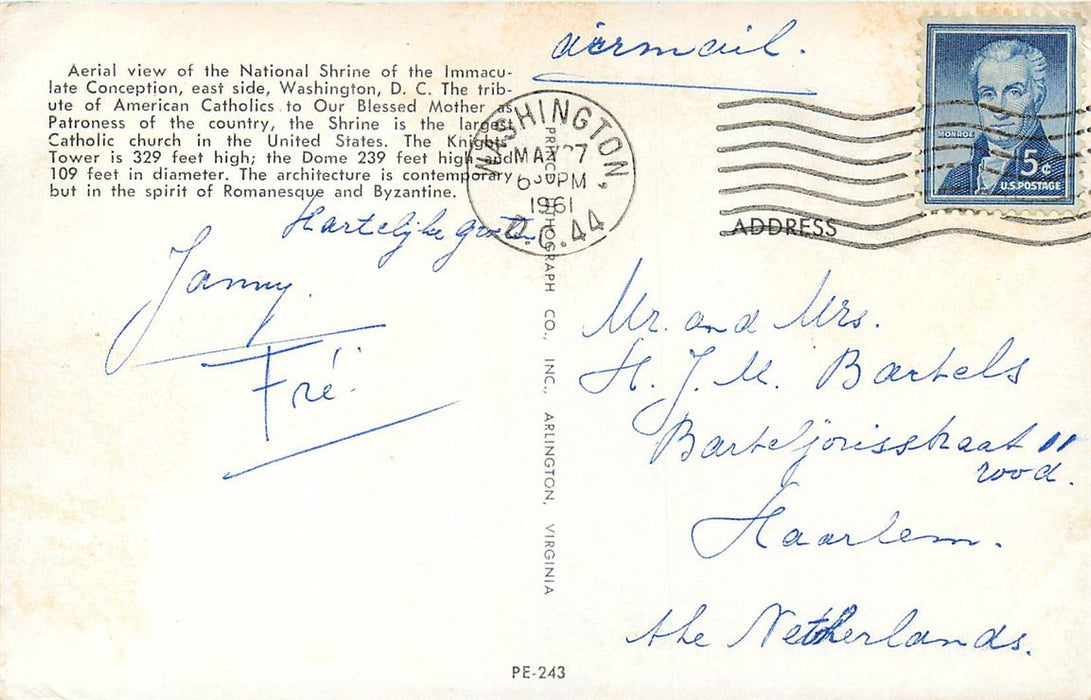 airmail.
Aerial view of the National Shrine of the Immacu-
late Conception, east side, Washington, D. C. The trib-
ute of American Catholics to Our Blessed Mother as
Patroness of the country, the Shrine is the largest
Catholic church in the United States. The Knights
Tower is 329 feet high; the Dome 239 feet high and
109 feet in diameter. The architecture is contemporary
but in the spirit of Romanesque and Byzantine.
Hartelijke groeten
Janny.
Fré.
WASHINGTON,
PM
1961
D.C. 44
MONROE
5¢
U.S. POSTAGE
ADDRESS
Mr. and Mrs.
H. J. M. Bartels
Barteljorisstraat 11
rood.
Haarlem.
the Netherlands.
LITHOGRAPH CO., INC., ARLINGTON, VIRGINIA
PE-243